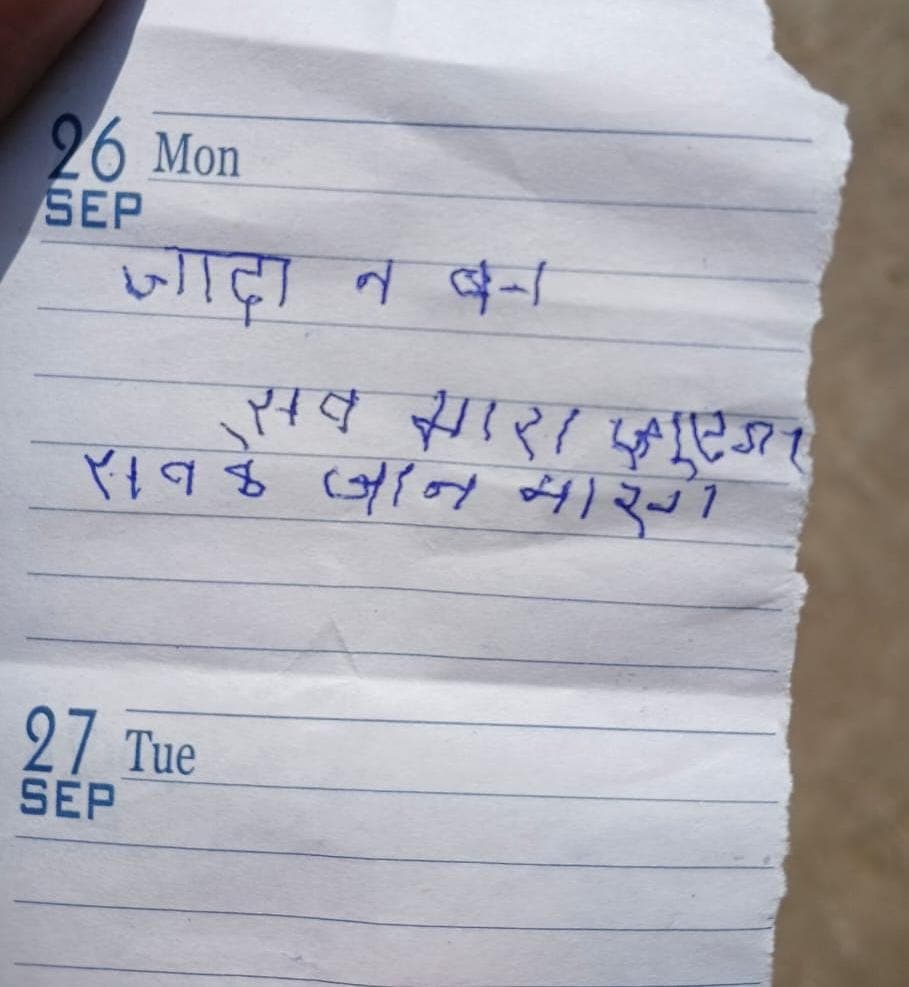 26 Mon
SEP
जादा न बन
सब मारा जाएगा
सब के जान मारब
27 Tue
SEP